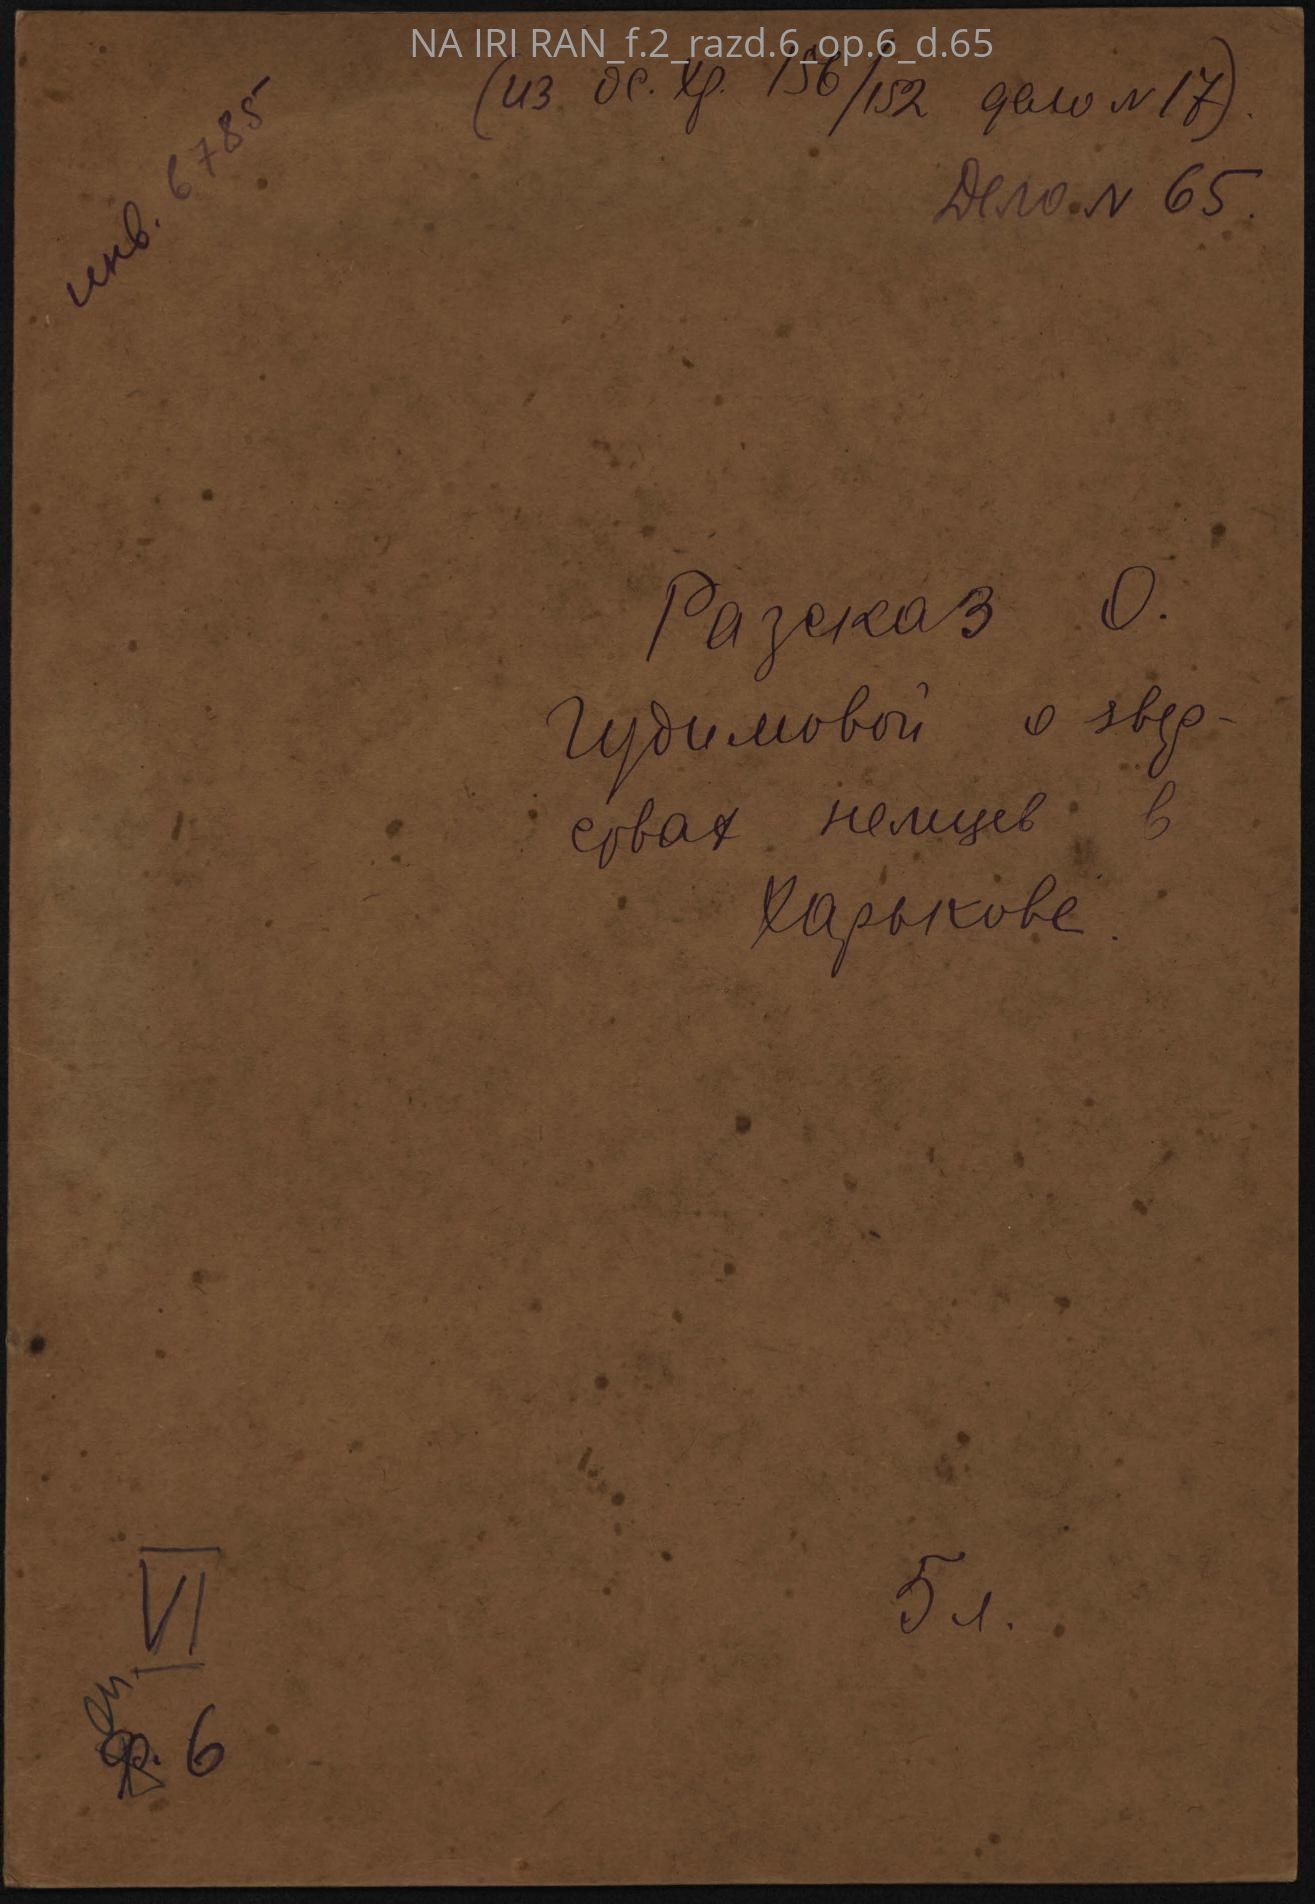 NA IRI RAN_f.2_razd.6_op.6_d.65
(из ос. хр. 156/152 дело N 17).
инв. 6785
Дело N 65.
Разсказ О.
Гудимовой о звер-
ствах немцев в
Харькове.
VI
5 л.
оп. 6